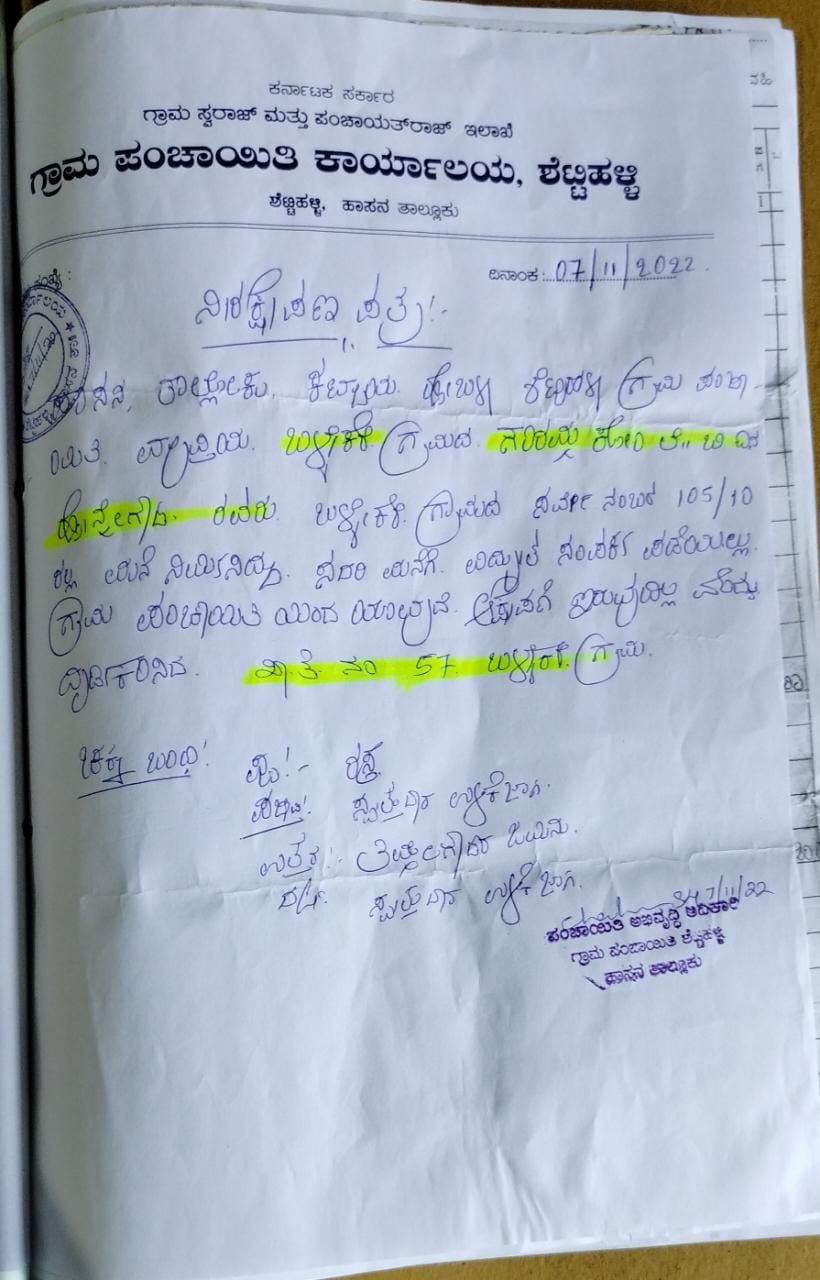 ಕರ್ನಾಟಕ ಸರ್ಕಾರ
ಗ್ರಾಮ ಸ್ವರಾಜ್ ಮತ್ತು ಪಂಚಾಯತ್‌ರಾಜ್ ಇಲಾಖೆ
ಗ್ರಾಮ ಪಂಚಾಯಿತಿ ಕಾರ್ಯಾಲಯ, ಶೆಟ್ಟಿಹಳ್ಳಿ
ಶೆಟ್ಟಿಹಳ್ಳಿ, ಹಾಸನ ತಾಲ್ಲೂಕು
ದಿನಾಂಕ: 07/11/2022.
ನಿರಕ್ಷೇಪಣ ಪತ್ರ:-
ಹಾಸನ, ತಾಲ್ಲೋಕು, ಕಟ್ಟಾಯ ಹೋಬಳಿ ಶೆಟ್ಟಿಹಳ್ಳಿ ಗ್ರಾಮ ಪಂಚಾ-
ಯಿತಿ ವ್ಯಾಪ್ತಿಯ ಗ್ರಾಮದ ಕೋಂ ಲೇ..
ಹೊನ್ನೇಗೌಡ ರವರು ಗ್ರಾಮದ ಸರ್ವೇ ನಂಬರ 105/10
ರಲ್ಲಿ ಮನೆ ನಿರ್ಮಿಸಿದ್ದು ಸದರಿ ಮನೆಗೆ ವಿದ್ಯುತ್ ಸಂಪರ್ಕ ಪಡೆಯಲು
ಗ್ರಾಮ ಪಂಚಾಯಿತಿ ಯಿಂದ ಯಾವುದೇ ಆಕ್ಷೇಪಣೆ ಇರುವುದಿಲ್ಲ ವೆಂದು
ದೃಢೀಕರಿಸಿದೆ. ಖಾತೆ ನಂ 57 ಗ್ರಾಮ.
ಚಕ್ಕು ಬಂಧಿ:
ಪೂ:- ರಸ್ತೆ
ಪಶ್ಚಿಮ: ಸ್ವತ್ತುದಾರ ಉಳಿಕೆ ಜಾಗ.
ಉತ್ತರ:- ಜಮೀನು.
ದಕ್ಷಿ: ಸ್ವತ್ತುದಾರ ಉಳಿಕೆ ಜಾಗ.
7/11/22
ಪಂಚಾಯಿತಿ ಅಭಿವೃದ್ಧಿ ಅಧಿಕಾರಿ
ಗ್ರಾಮ ಪಂಚಾಯಿತಿ ಶೆಟ್ಟಿಹಳ್ಳಿ
ಹಾಸನ ತಾಲ್ಲೂಕು